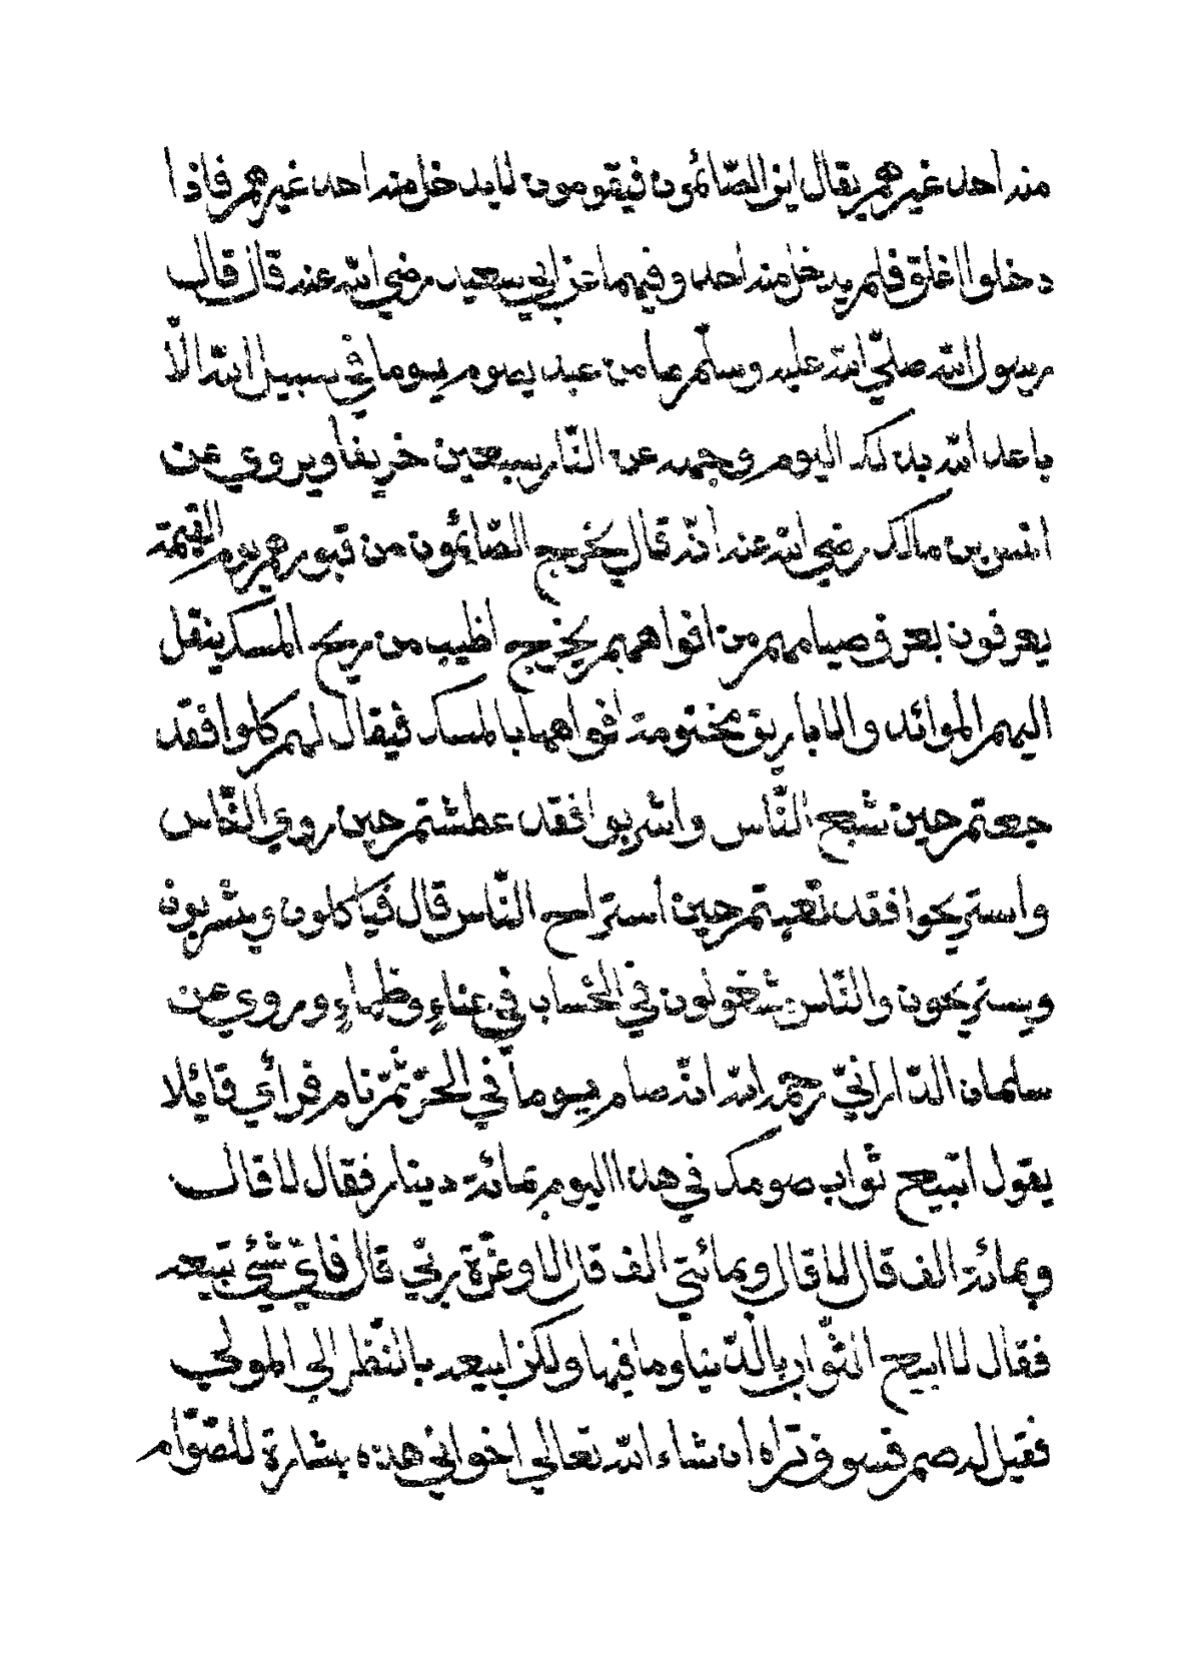 منه احد غيرهم يقال اين الصّائمون فيقومون لا يدخل منه احد غيرهم فاذا
دخلوا اغلق فلم يدخل منه احد وفيهما عن ابي سعيد رضي الله عنه قال قال
رسول الله صلّي الله عليه وسلّم ما من عبد يصوم يوما في سبيل الله الّا
باعد الله بذلك اليوم وجهه عن النّار سبعين خريفا ويروي عن
انس بن مالك رضي الله عنه انّه قال يخرج الصّائمون من قبورهم يوم القيمة
يعرفون بعرف صيامهم من افواههم يخرج اطيب من ريح المسك ينقل
اليهم الموائد والاباريق مختومة افواهها بالمسك فيقال لهم كلوا فقد
جعتم حين شبع النّاس واشربوا فقد عطشتم حين روي النّاس
واستريحوا فقد تعبتم حين استراح النّاس قال فياكلون ويشربون
ويستريحون والنّاس مشغولون في الحساب في عناءٍ وظماءٍ وروي عن
سليمان الدّارانيّ رحمه الله انّه صام يوماً في الحرّ ثمّ نام فرأي قائلا
يقول اتبيع ثواب صومك في هذا اليوم بمائة دينار فقال لا قال
وبمائة الف قال لا قال وبمائتي الف قال لا وعزّة ربّي قال فايّ شئي تبيعه
فقال لا ابيع الثّواب بالدّنيا وما فيها ولكن ابيعه بالنّظر الي المولي
فقيل له صم فسوف تراه ان شاء الله تعالي اخواني هذه بشارة للصّوّام